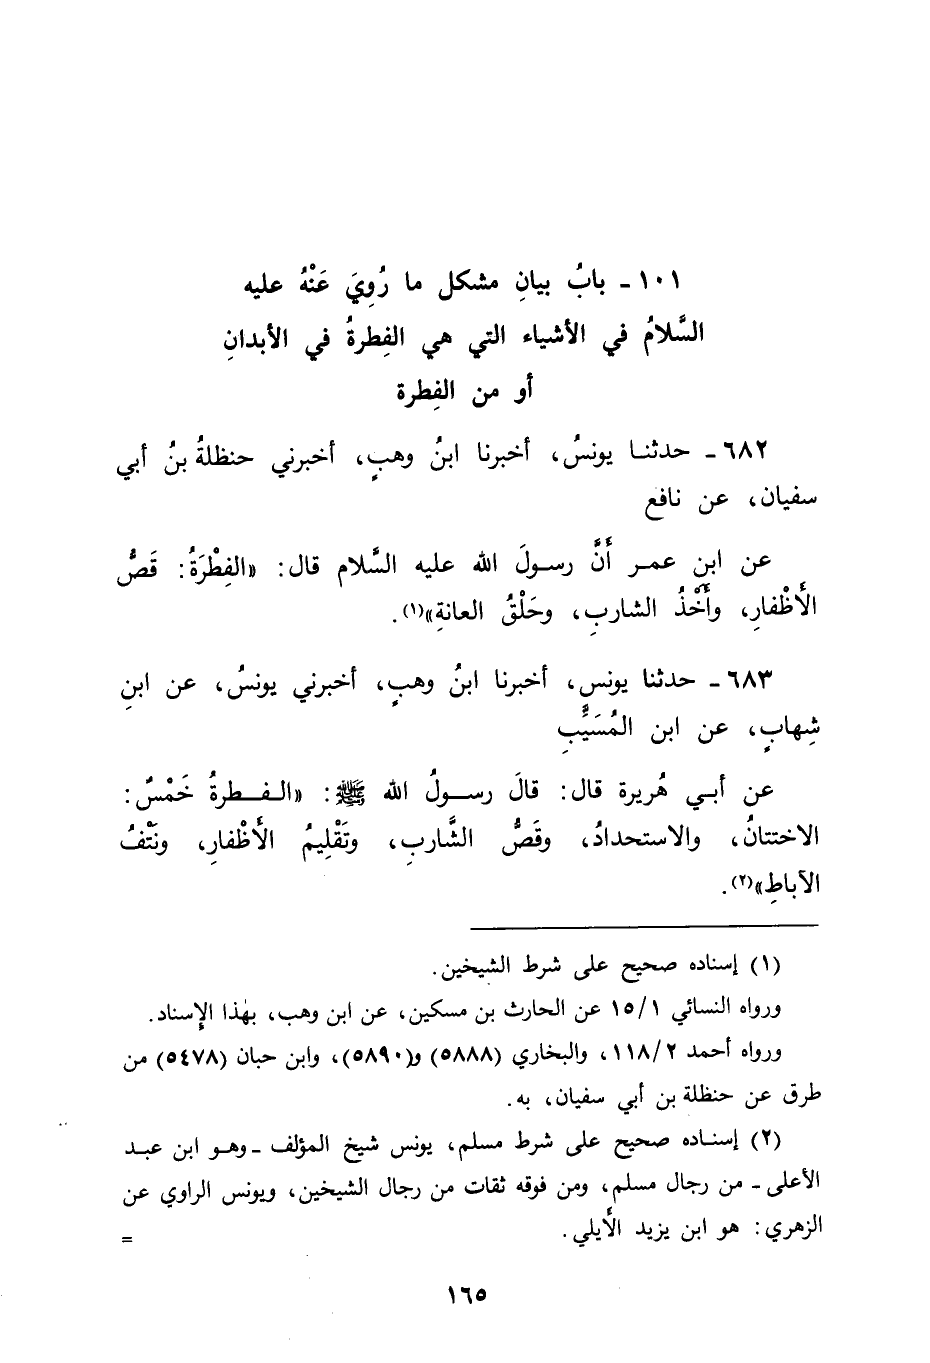 ١٠١ ـ بابُ بيانِ مشكل ما رُوِيَ عَنْهُ عليه
السَّلامُ في الأشياء التي هي الفِطرةُ في الأبدانِ
أو من الفِطرة
٦٨٢ ـ حدثنا يونسُ، أخبرنا ابنُ وهبٍ، أخبرني حنظلةُ بنُ أبي
سفيان، عن نافع
عن ابنِ عمر أَنَّ رسولَ الله عليه السَّلام قال: «الفِطْرَةُ: قَصُّ
الأَظْفارِ، وأَخْذُ الشاربِ، وحَلْقُ العانةِ»(١).
٦٨٣ ـ حدثنا يونس، أخبرنا ابنُ وهبٍ، أخبرني يونسُ، عن ابنِ
شِهابٍ، عن ابن المُسَيَّبِ
عن أبي هُريرة قال: قالَ رسولُ الله ﷺ: «الفطرةُ خَمْسٌ:
الاختتانُ، والاستحدادُ، وقَصُّ الشَّاربِ، وتَقْلِيمُ الأَظْفارِ، ونَتْفُ
الآباطِ»(٢).
(١) إسناده صحيح على شرط الشيخين.
ورواه النسائي ١٥/١ عن الحارث بن مسكين، عن ابن وهب، بهٰذا الإِسناد.
ورواه أحمد ١١٨/٢، والبخاري (٥٨٨٨) و(٥٨٩٠)، وابن حبان (٥٤٧٨) من
طرق عن حنظلة بن أبي سفيان، به.
(٢) إسناده صحيح على شرط مسلم، يونس شيخ المؤلف ـ وهو ابن عبد
الأعلى ـ من رجال مسلم، ومن فوقه ثقات من رجال الشيخين، ويونس الراوي عن
الزهري: هو ابن يزيد الأَيلي. =
١٦٥